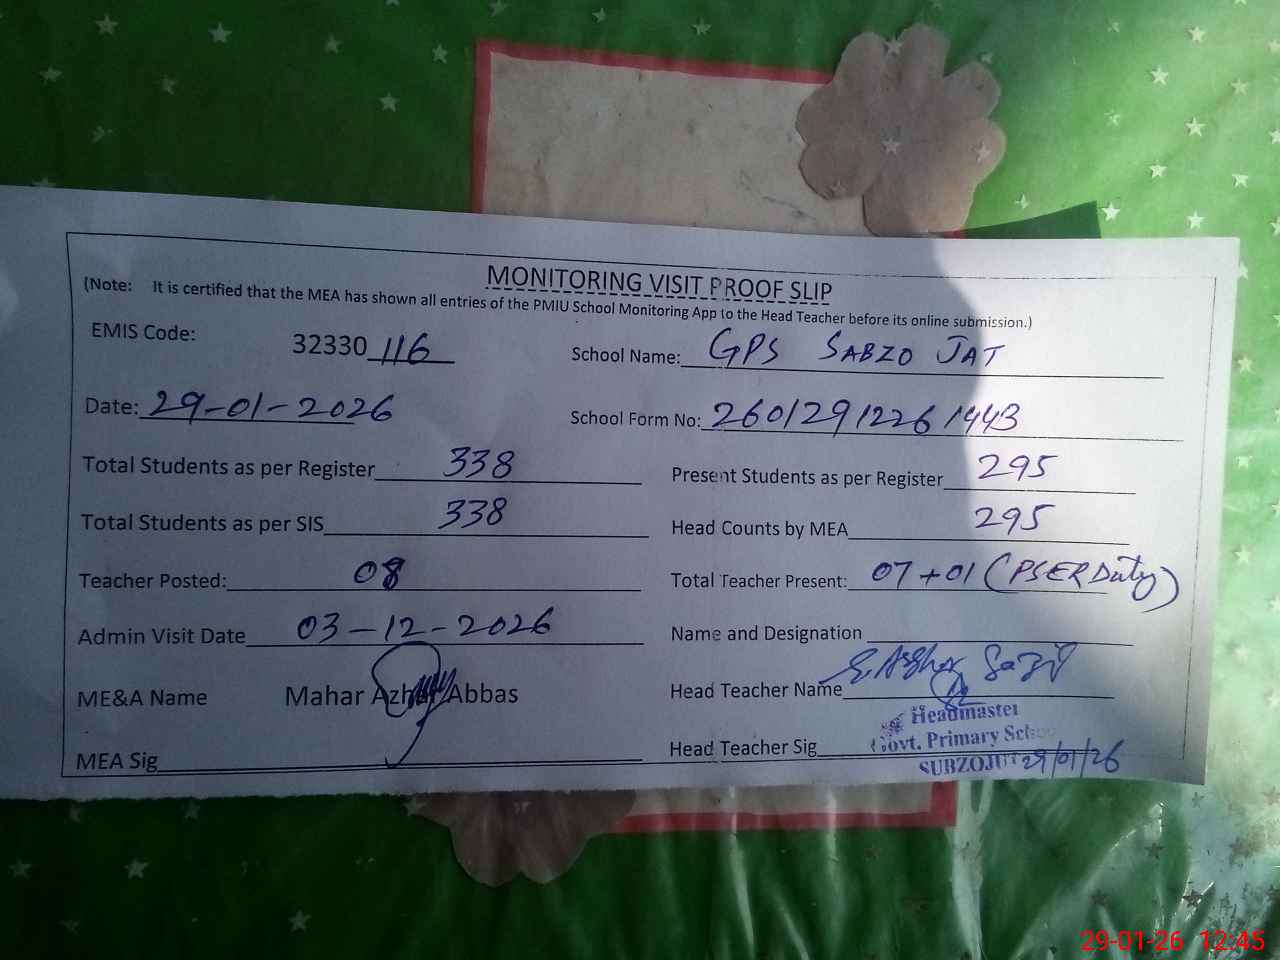 MONITORING VISIT PROOF SLIP
(Note: It is certified that the MEA has shown all entries of the PMIU School Monitoring App to the Head Teacher before its online submission.)
EMIS Code: 32330 116 School Name: GPS SABZO JAT
Date: 29-01-2026 School Form No: 2601291226 1443
Total Students as per Register 338 Present Students as per Register 295
Total Students as per SIS 338 Head Counts by MEA 295
Teacher Posted: 08 Total Teacher Present: 07+01 (PSER Duty)
Admin Visit Date 03-12-2026 Name and Designation
ME&A Name Mahar Azhar Abbas Head Teacher Name
MEA Sig Head Teacher Sig
Headmaster
Govt. Primary
SUBZOJUT 29/01/26
29-01-26 12:45